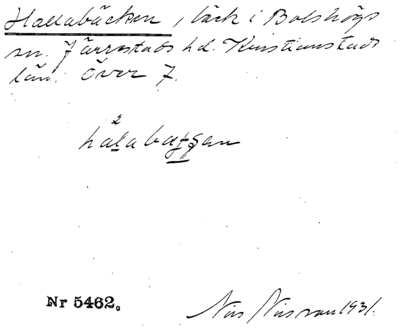 Hallabäcken, bäck i Bolshögs
sn. Järrestads hd. Kristianstads
län. Över 7.
2
halabatsan
Nr 5462.
Nils Nilsson 1931.